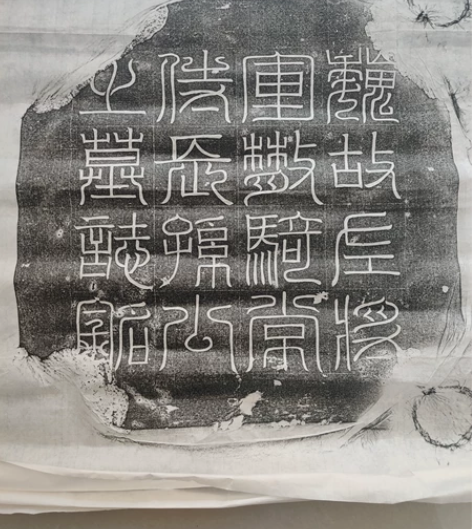 魏故左將
軍散騎常
侍長孫公
之墓誌銘